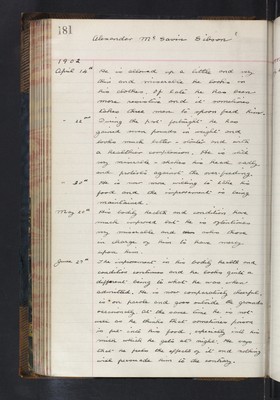 181
Alexander McGavin Gibson
1902
April 14th He is allowed up a little and very
thin and miserable he looks in
his clothes. Of late he has been
more resistive and it sometimes
takes three men to spoon feed him.
" 22nd During the past fortnight he has
gained nine pounds in weight and
looks much better - stouter and with
a healthier complexion. He is still
very miserable - shakes his head sadly
and protests against the over-feeding.
" 30th He is now more willing to take his
food and the improvement is being
maintained.
May 20th His bodily health and condition have
much improved but he is
very miserable and those
in charge of him to have mercy
upon him.
June 27th The improvement in his bodily health and
condition continues and he looks quite a
different being to what he was when
admitted. He is now comparatively cheerful,
is on parole and goes outside the grounds
occasionally. At the same time he is not
well as he thinks that sometimes poison
is put into his food, especially into his
milk which he gets at night. He says
that he feels the effects of it and nothing
will persuade him to the contrary.